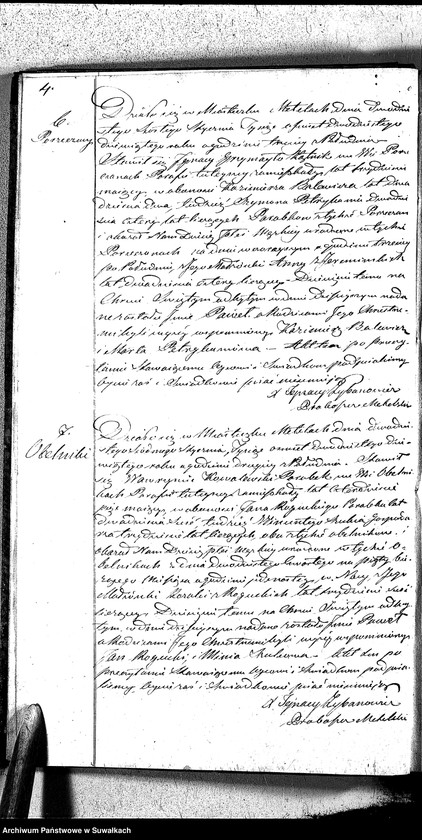 4.
6.
Porzeczany
Działo się w Miasteczku Metelach dnia dwudzie-
stego szóstego Stycznia Tysiąc ośmset dwudziestego
dziewiątego roku o godzinie trzeciej z Południa
Stawił się Jgnacy Rolnik we Wsi Porze-
czanach Parafii tuteyszey zamięszkały, lat trzydzieści
maiący, w obecności Kazimierza Balewicza lat dwa-
dzieścia dwa, tudzież Szymona dwadzie-
ścia cztery lat liczących Parobków z tychże Porzeczan
i okazał Nam dziecię płci Męzkiey urodzone w tychże
Porzeczanach na dniu wczorayszym o godzinie trzeciej
po Południu z Jego Małżonki Anny z
lat dwadzieścia cztery liczącey. Dziecięciu temu na
Chrzcie Świętym odbytym w dniu dzisieyszym nada-
ne zostało Jmie Paweł, a Rodzicami Jego Chrzestne-
mi byli wyżey wspomniony Kazimierz Balewicz
i Marta Akt ten po przeczy-
taniu Stawaiącemu Oycowi i Świadkom podpisaliśmy
Oyciec i Świadkowie pisać nieumieją
X Jgnacy
Proboszcz Metelski
7.
Obelniki
Działo się w Miasteczku Metelach dnia dwudzie-
stego siódmego Stycznia, Tysiąc ośmset dwudziestego dzie-
wiątego roku o godzinie drugiey z Południa. Stawił
się Wawrzyniec Kowalewski Parobek we Wsi Obelni-
kach Parafii tuteyszey zamięszkały lat czterdzieści
pięć maiący, w obecności Jana Roguckiego Parobka lat
dwadzieścia sześć tudzież Wincentego Gospoda-
rza trzydzieści lat liczących, obu z tychże Obelników, i
okazał Nam dziecię płci Męzkiey urodzone w tychże O-
belnikach z dnia dwudziestego czwartego na piąty bie-
żącego Miesiąca o godzinie jedenastey w Nocy z Jego
Małżonki Rozalii z Roguckich lat trzydzieści sześć
liczącey. Dziecięciu temu na Chrzcie Świętym odby-
tym w dniu dzisieyszym nadane zostało Jmie Paweł
a Rodzicami Jego Chrzestnemi byli wyżey wspomniony
Jan Rogucki i Akt ten po
przeczytaniu Stawaiącemu Oycowi i Świadkom podpisa-
liśmy Oyciec i Świadkowie pisać nieumieją
X Jgnacy
Proboszcz Metelski
Archiwum Państwowe w Suwałkach